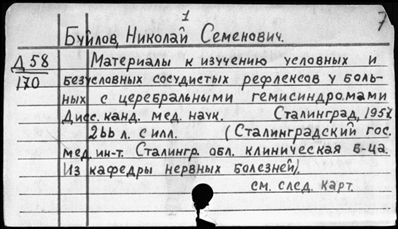 1
7
Буйлов, Николай Семенович.
Д 58
170
Материалы к изучению условных и
безусловных сосудистых рефлексов у боль-
ных с церебральными гемисиндромами
Дисс. канд. мед. наук. Сталинград, 1957.
266 л. с илл. (Сталинградский гос.
мед. ин-т. Сталингр. обл. клиническая б-ца.
Из кафедры нервных болезней).
см. след. карт.